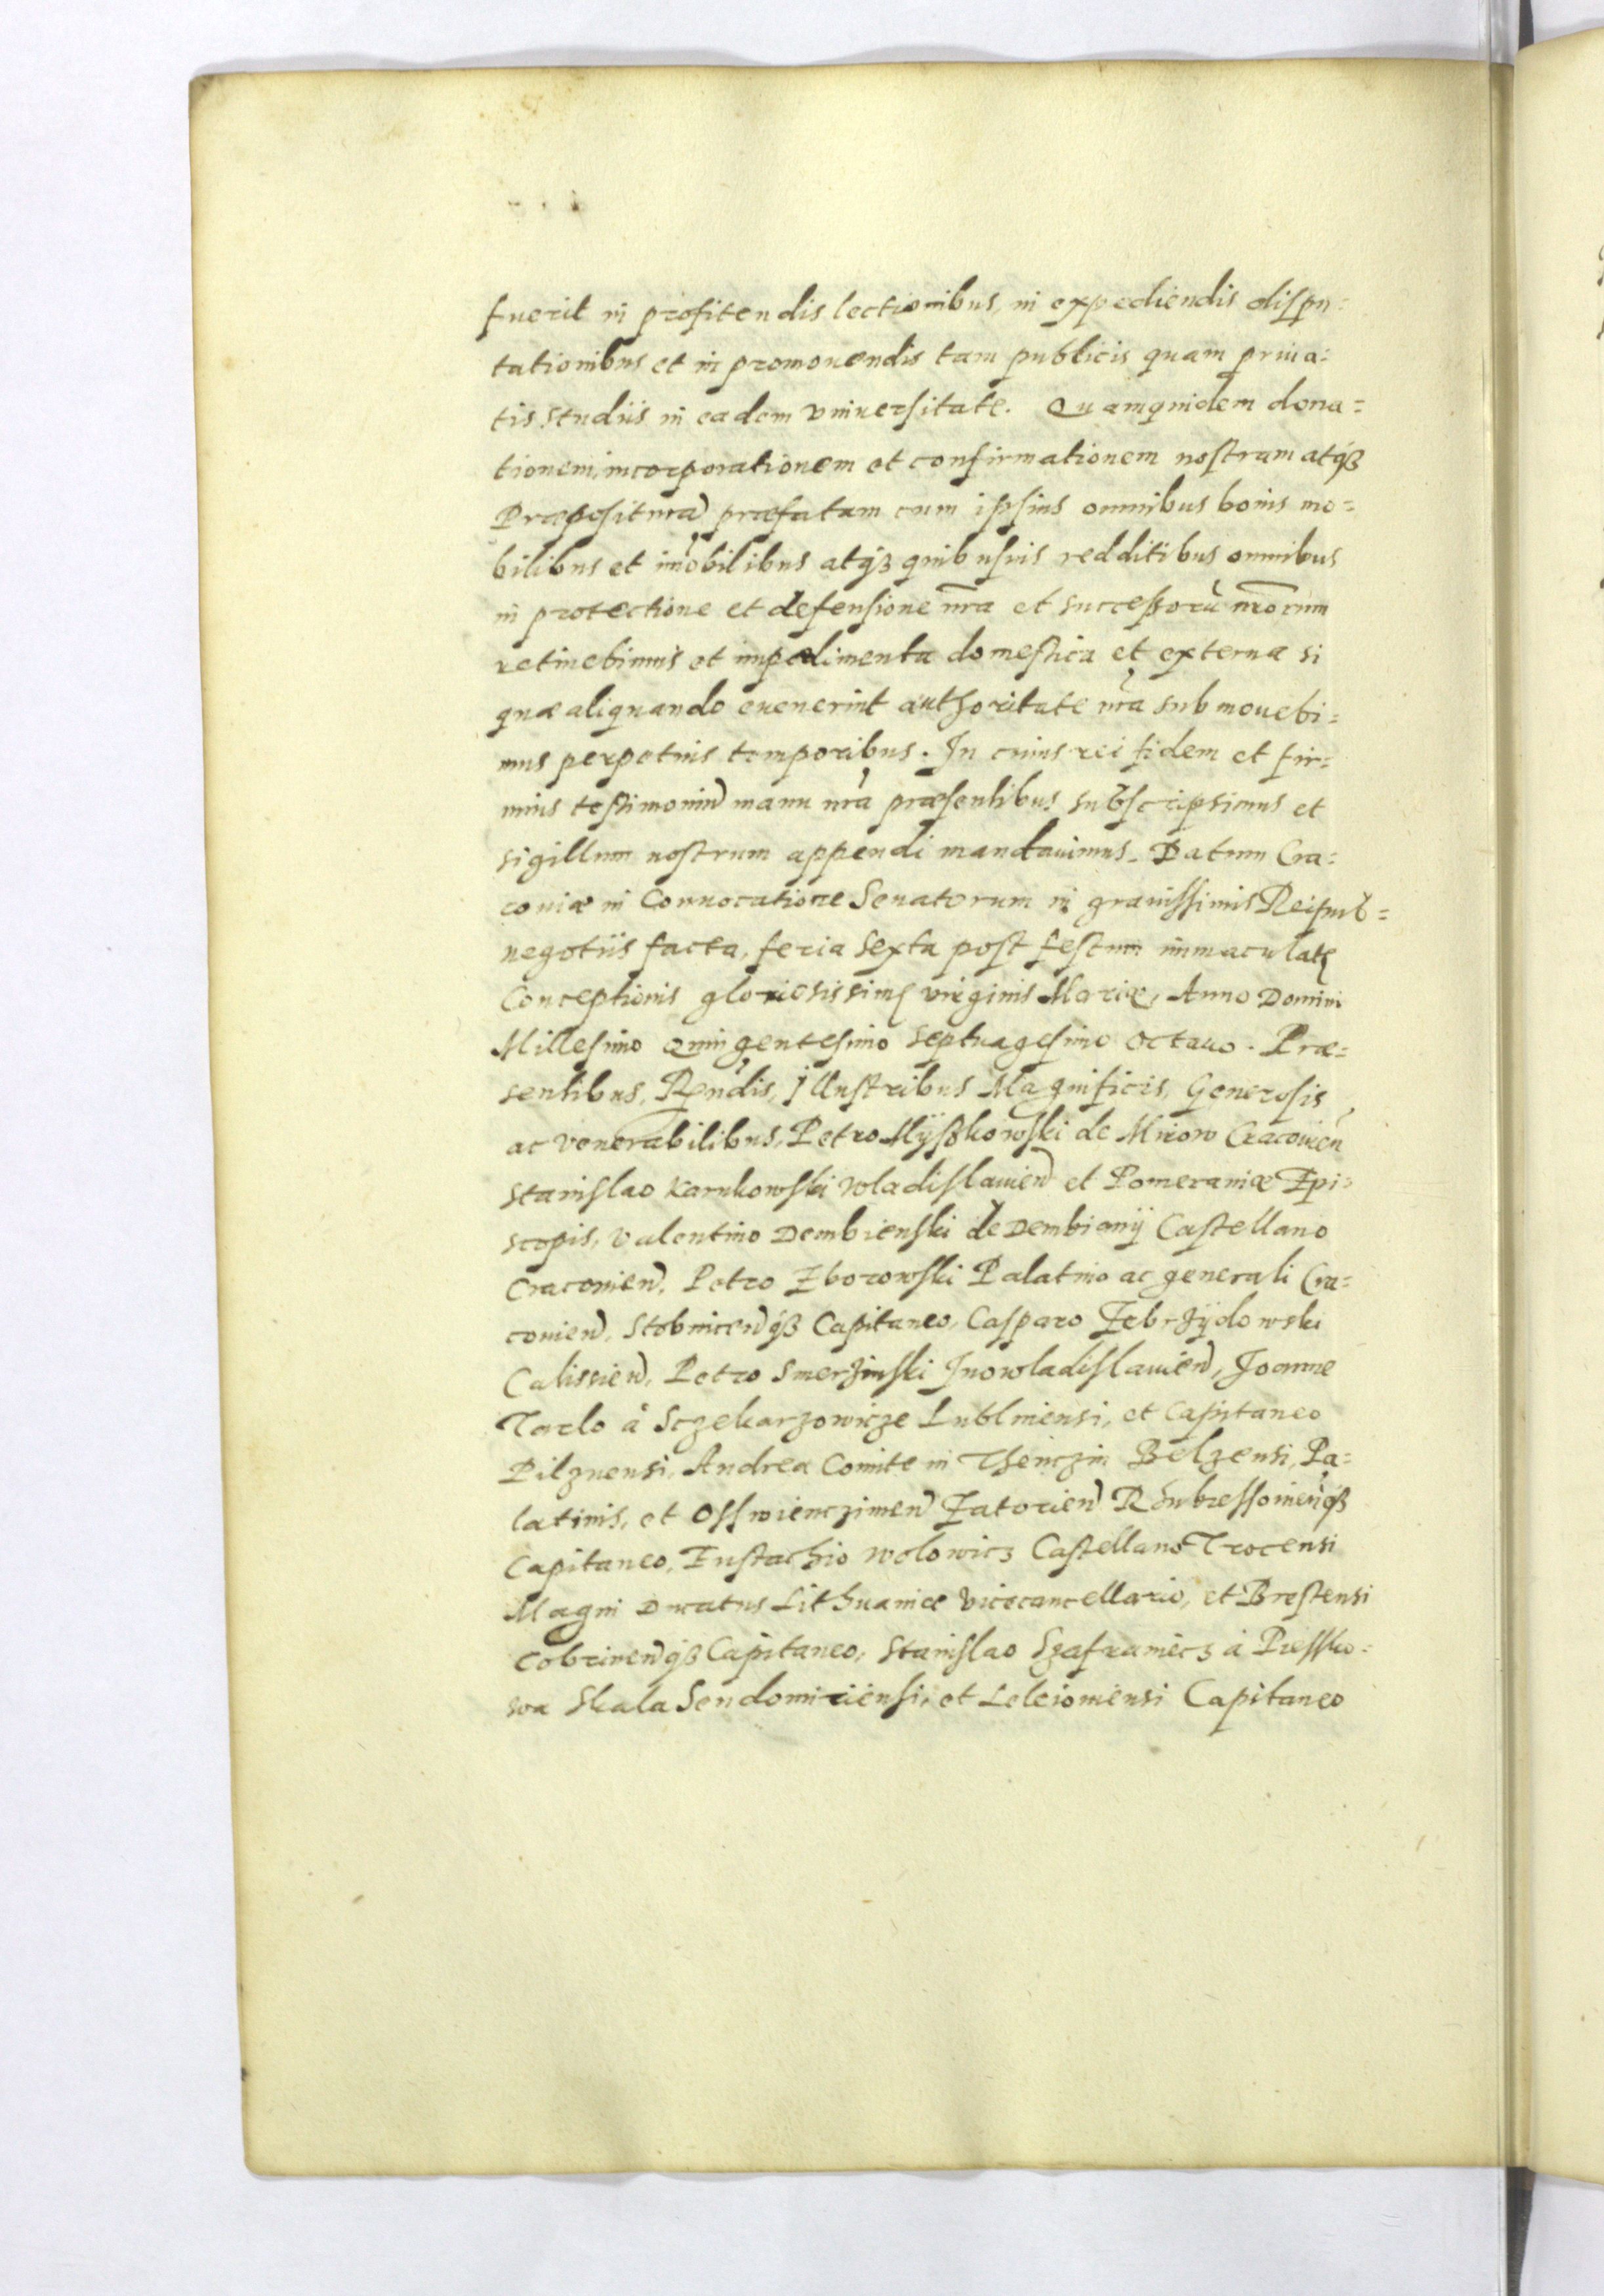 fuerit in profitendis lectionibus, in expediendis dispu=
tationibus et in promouendis tam publicis quam priua=
tis studiis in eadem vniuersitate. Quamquidem dona=
tionem, incorporationem et confirmationem nostram atq₃
Præposituram̃ præfatam cum ipsius omnibus bonis mo=
bilibus et imõbilibus atq₃ quibusuis redditibus omnibus
in protectione et defensione nrã et successorũ nrõrum
retinebimus et impedimenta domestica et externa si
quæ aliquando euenerint authoritate nrã submouebi=
mus perpetuis temporibus. In cuius rei fidem et fir=
mius testimoniũ manu nrã præsentibus subscripsimus et
sigillum nostrum appendi mandauimus. Datum Cra=
couiæ in Conuocatione Senatorum in grauissimis Reipub=
negotiis facta, feria sexta post festum immaculatę
Conceptionis gloriosissimę virginis Mariæ, Anno Domini
Millesimo Quingentesimo Septuagesimo Octauo. Præ=
sentibus, Rñdis, Illustribus Magnificis, Generosis
ac Venerabilibus, Petro Myszkowski de Mirow Cracouień
Stanislao Karnkowski Wladislauień et Pomeraniæ Epi=
scopis, Valentino Dembienski de Dembiany Castellano
Cracouień, Petro Zborowski Palatino ac generali Cra=
couień, Stobniceń q₃ Capitaneo, Casparo Zebrzÿdowski
Calissień, Petro Smerzinski Inowladislauień, Joanne
Tarlo à Sczekarzowicze Lublinensi, et Capitaneo
Pilznensi, Andrea Comite in Thenczin Belzensi, Pa=
latinis, et Osswienczimeń Zatorień Rhubessouieńq₃
Capitaneo, Eustachio Wolowicz Castellano Trocensi
Magni Ducatus Lithuaniæ Vicecancellario, et Brestensi
Cobrineń q₃ Capitaneo, Stanislao Szafraniecz à Piessko=
wa Skala Sendomiriensi, et Leleiouiensi Capitaneo